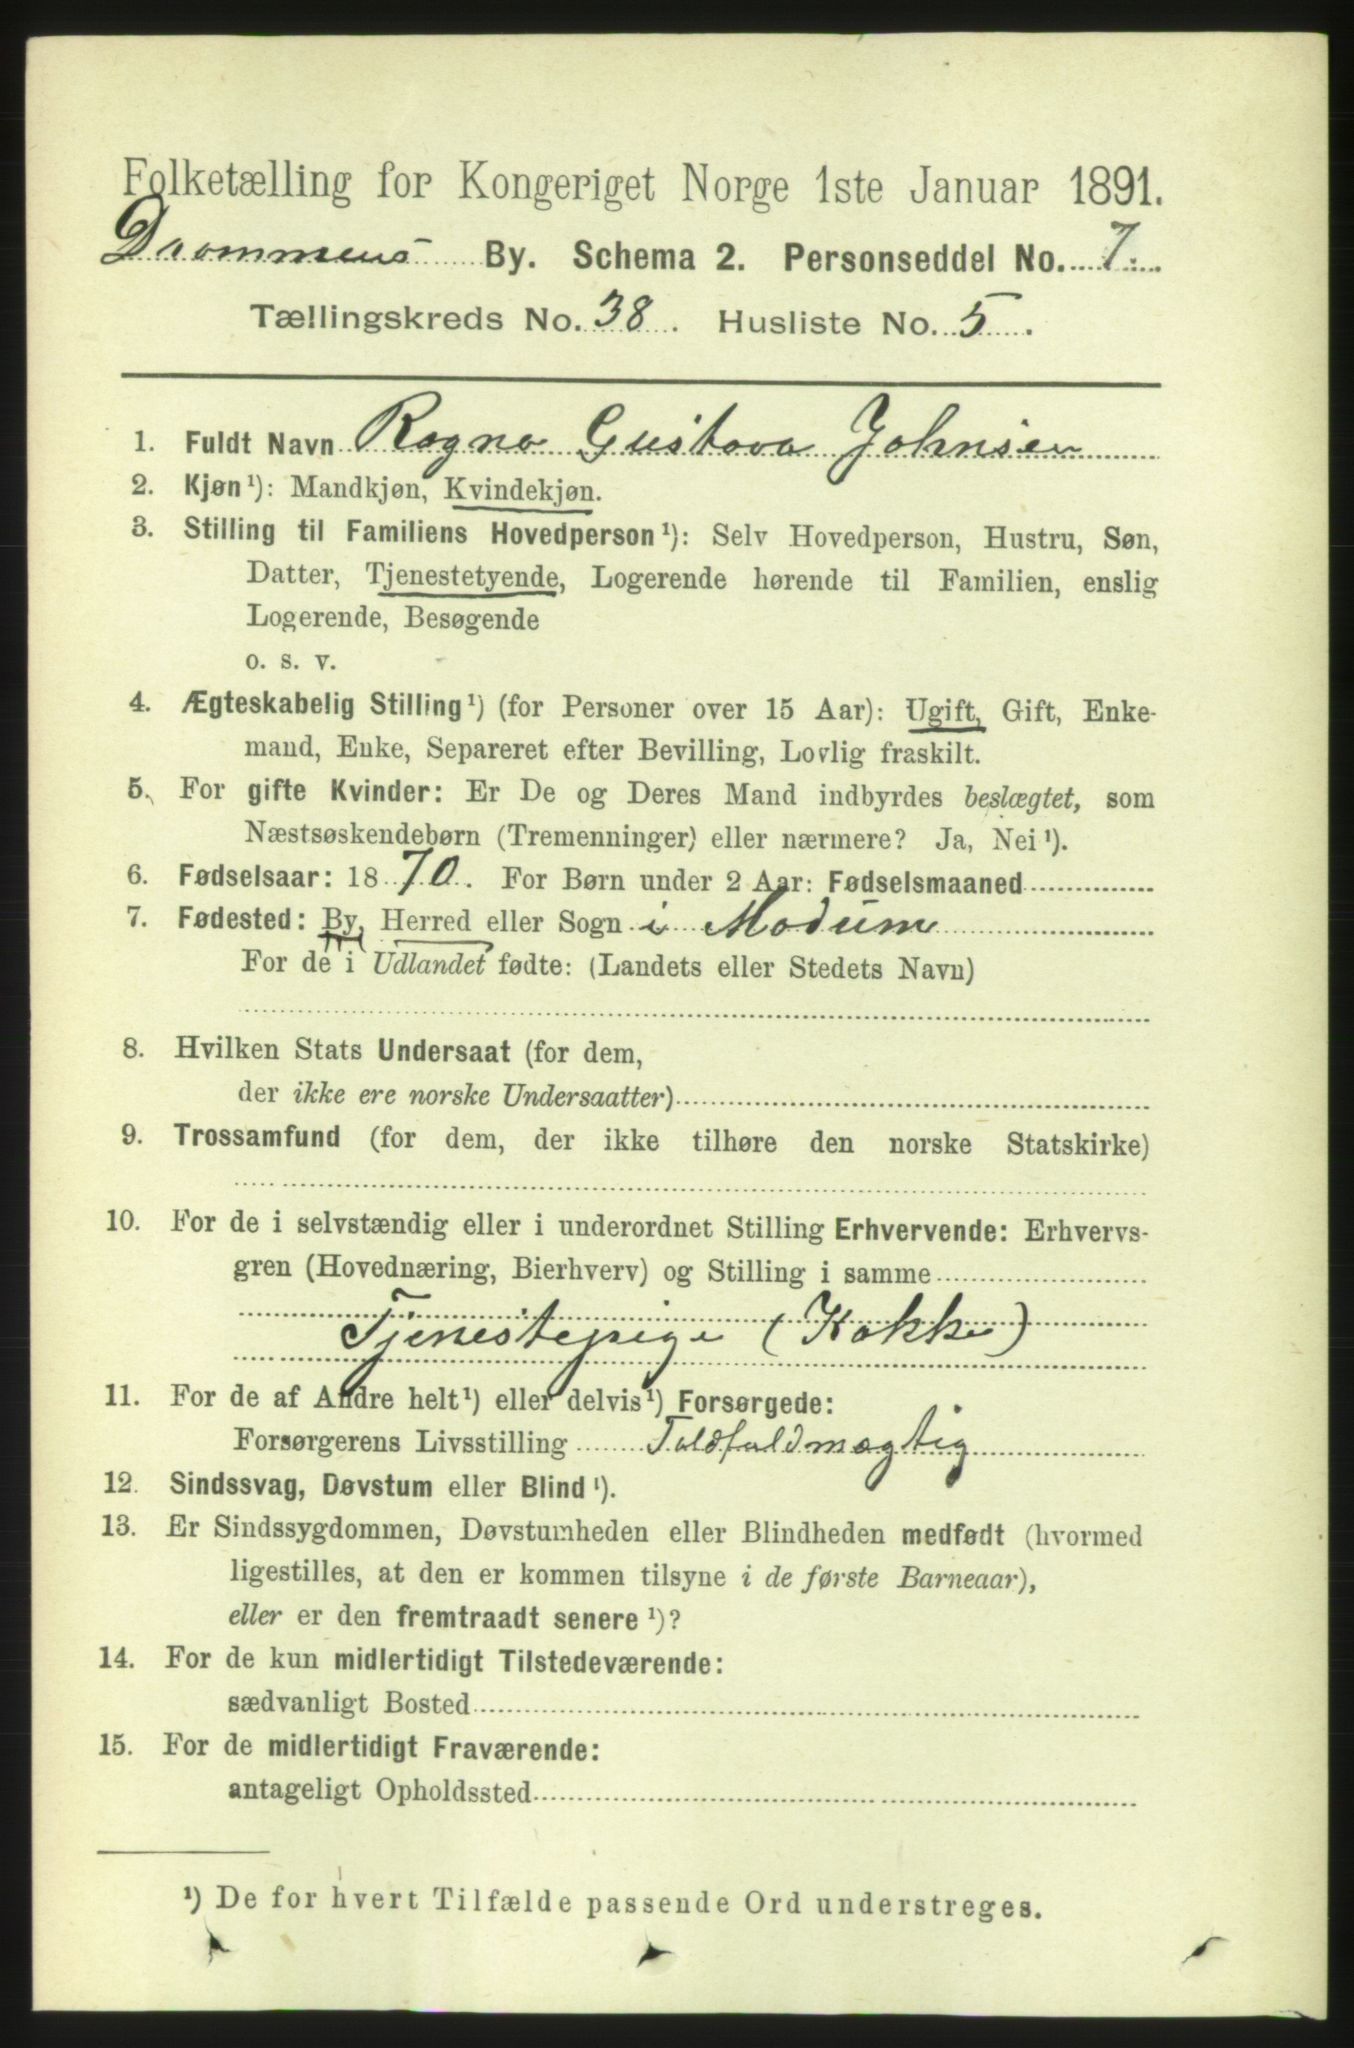 Folketælling for Kongeriget Norge 1ste Januar 1891.
Drammens By. Schema 2. Personseddel No. 7.
Tællingskreds No. 38. Husliste No. 5.
1. Fuldt Navn Ragna Gustava Johnsen
2. Kjøn¹): Mandkjøn, Kvindekjøn.
3. Stilling til Familiens Hovedperson¹): Selv Hovedperson, Hustru, Søn,
Datter, Tjenestetyende, Logerende hørende til Familien, enslig
Logerende, Besøgende
o. s. v.
4. Ægteskabelig Stilling¹) (for Personer over 15 Aar): Ugift, Gift, Enke-
mand, Enke, Separeret efter Bevilling, Lovlig fraskilt.
5. For gifte Kvinder: Er De og Deres Mand indbyrdes beslægtet, som
Næstsøskendebørn (Tremenninger) eller nærmere? Ja, Nei¹).
6. Fødselsaar: 1870. For Børn under 2 Aar: Fødselsmaaned
7. Fødested: By, Herred eller Sogn i Modum
For de i Udlandet fødte: (Landets eller Stedets Navn)
8. Hvilken Stats Undersaat (for dem,
der ikke ere norske Undersaatter)
9. Trossamfund (for dem, der ikke tilhøre den norske Statskirke)
10. For de i selvstændig eller i underordnet Stilling Erhvervende: Erhvervs-
gren (Hovednæring, Bierhverv) og Stilling i samme
Tjenestepige (Kokke)
11. For de af Andre helt¹) eller delvis¹) Forsørgede:
Forsørgerens Livsstilling Toldfuldmægtig
12. Sindssvag, Døvstum eller Blind¹).
13. Er Sindssygdommen, Døvstumheden eller Blindheden medfødt (hvormed
ligestilles, at den er kommen tilsyne i de første Barneaar),
eller er den fremtraadt senere¹)?
14. For de kun midlertidigt Tilstedeværende:
sædvanligt Bosted
15. For de midlertidigt Fraværende:
antageligt Opholdssted
¹) De for hvert Tilfælde passende Ord understreges.